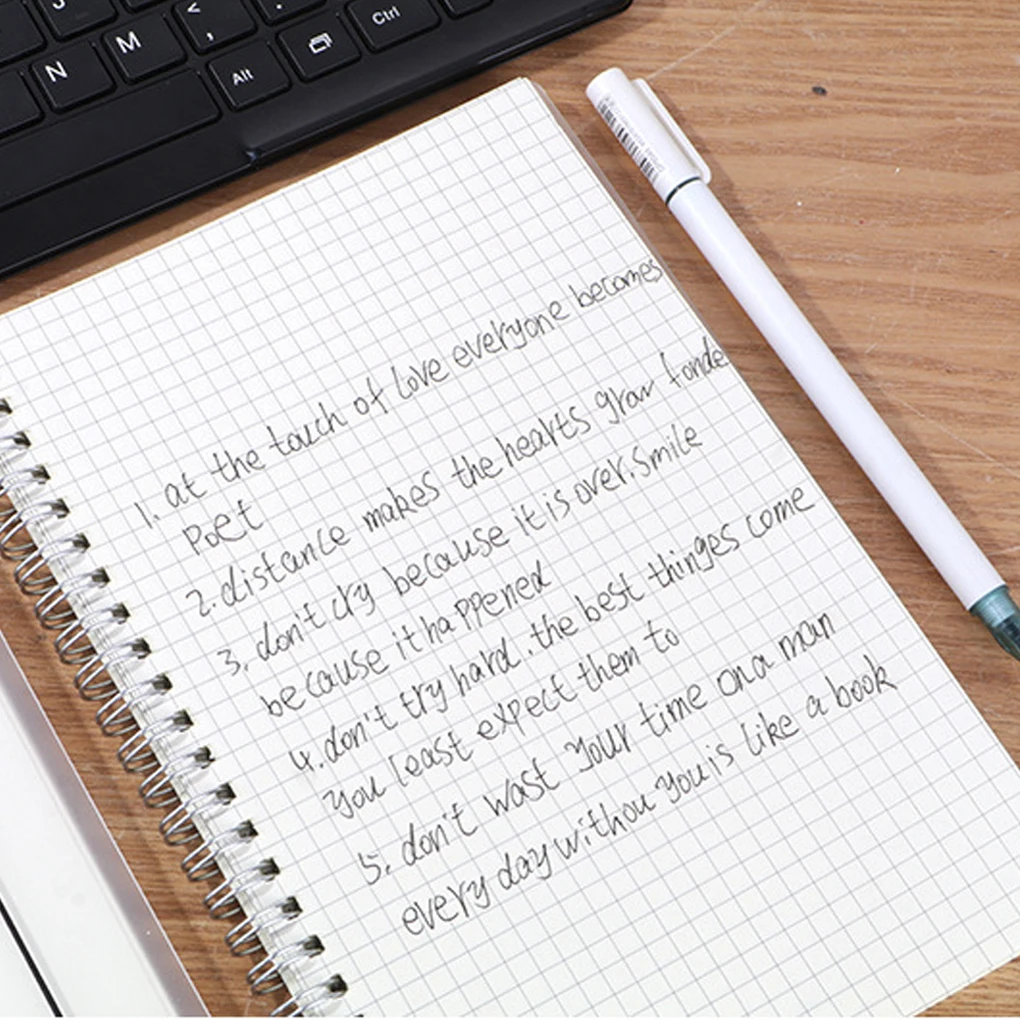 N
M
<
,
Alt
Ctrl
1. at the touch of love everyone becomes
Poet
2. distance makes the hearts grow fonde
3. don't cry because it is over. Smile
because it happened
4. don't try hard. the best thinges come
you least expect them to
5. don't wast your time on a man
every day withou you is like a book